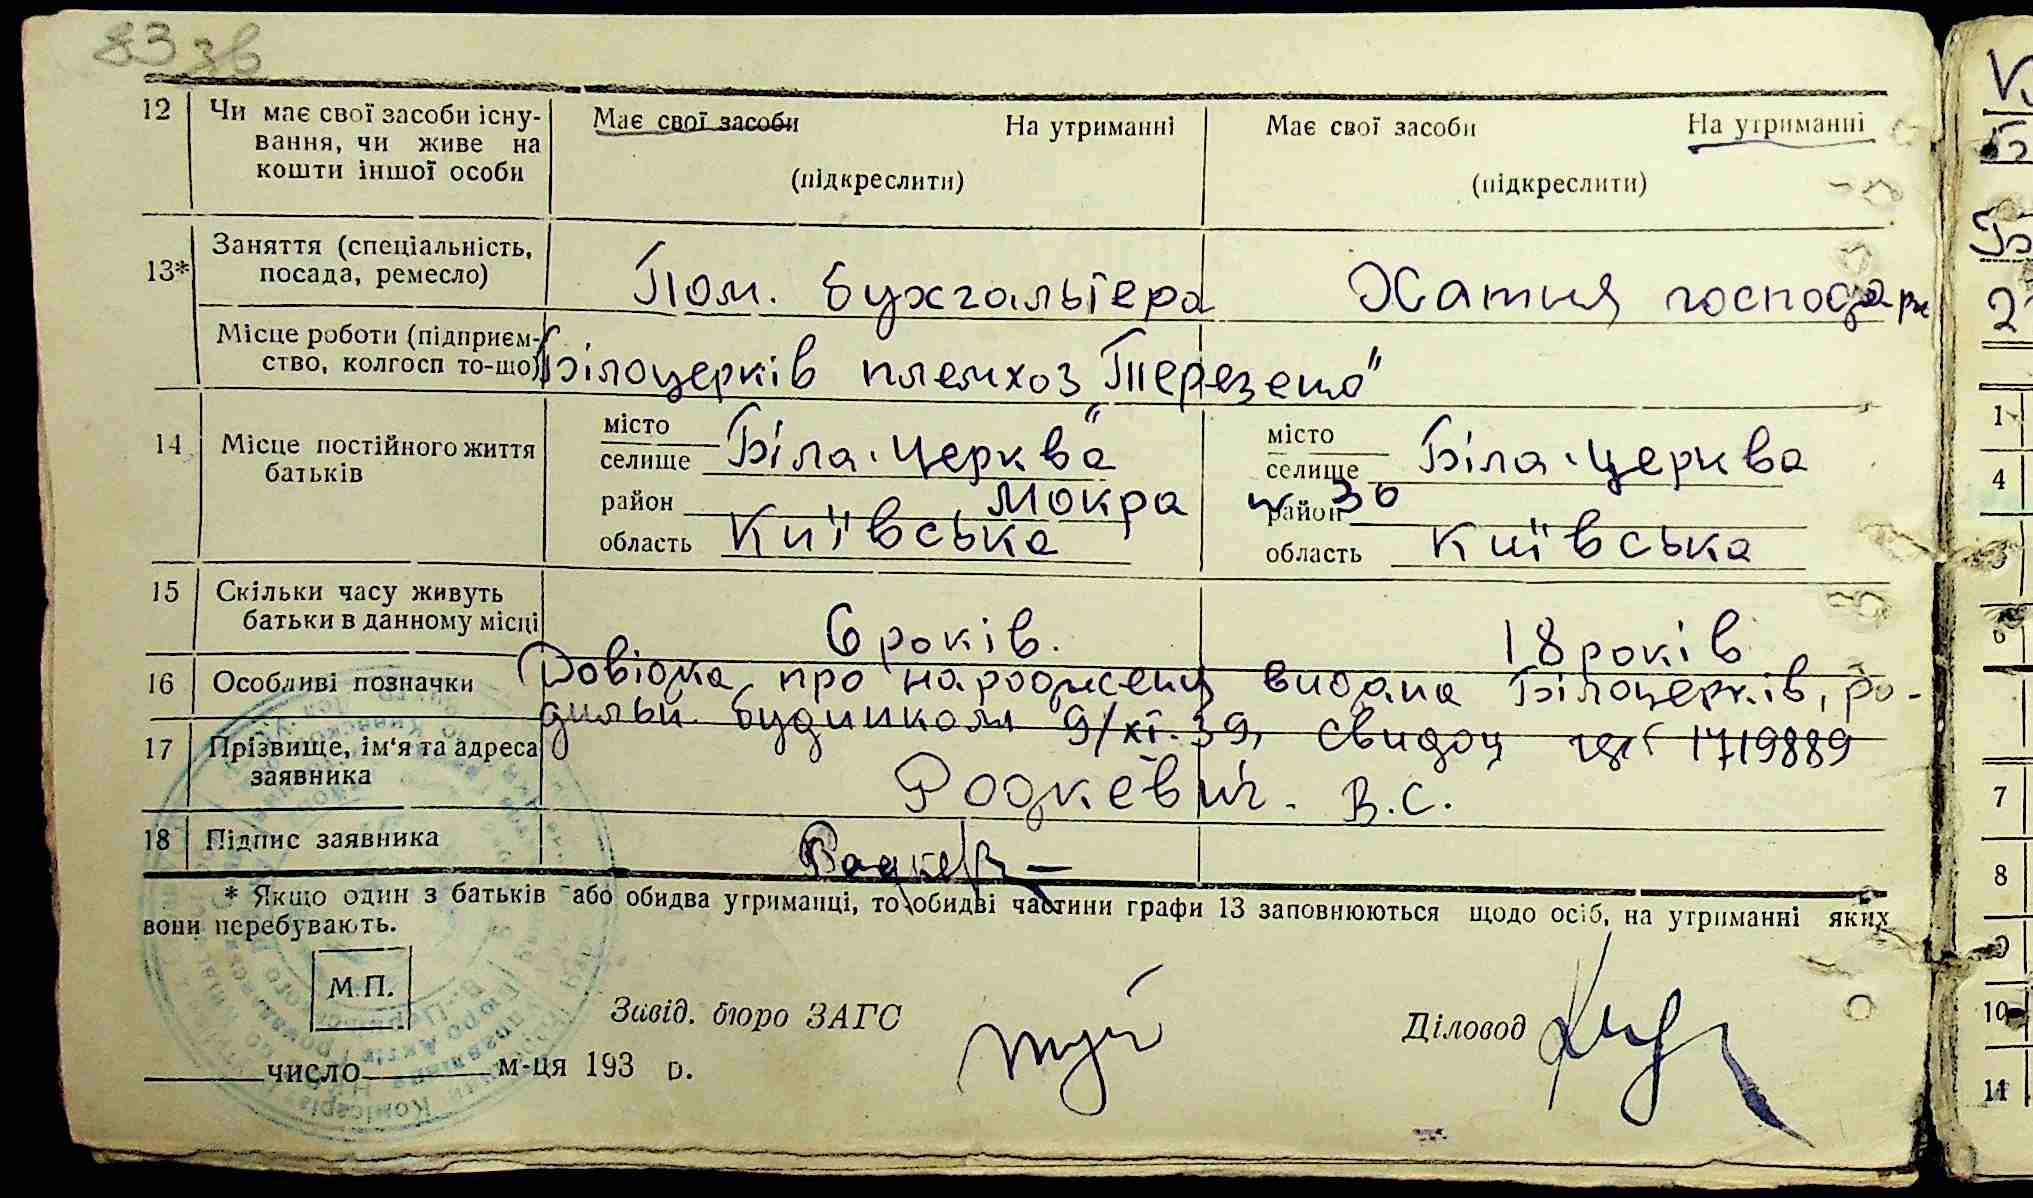 83 зв
12 Чи має свої засоби існу- Має свої засоби На утриманні Має свої засоби На утриманні
вання, чи живе на
кошти іншої особи (підкреслити) (підкреслити)
13* Заняття (спеціальність,
посада, ремесло) Пом. бухгальтера Хатня господарк
Місце роботи (підприєм-
ство, колгосп то-що) Білоцерків племхоз "Терезено"
14 Місце постійного життя
батьків
місто
селище Біла-Церква
район Мокра
область Київська
місто
селище Біла-Церква
район № 36
область Київська
15 Скільки часу живуть
батьки в данному місці 6 років. 18 років
16 Особливі позначки Довідка про народження видана Білоцерків, ро-
дильн. будинком 9/XI.39, свидоц 1719889
17 Прізвище, ім'я та адреса
заявника Родкевич. В.С.
18 Підпис заявника Родкев
* Якщо один з батьків або обидва утриманці, то обидві частини графи 13 заповнюються щодо осіб, на утриманні яких
вони перебувають.
М.П.
Завід. бюро ЗАГС Діловод
число м-ця 193 р.
1
4
6
7
8
9
10
11